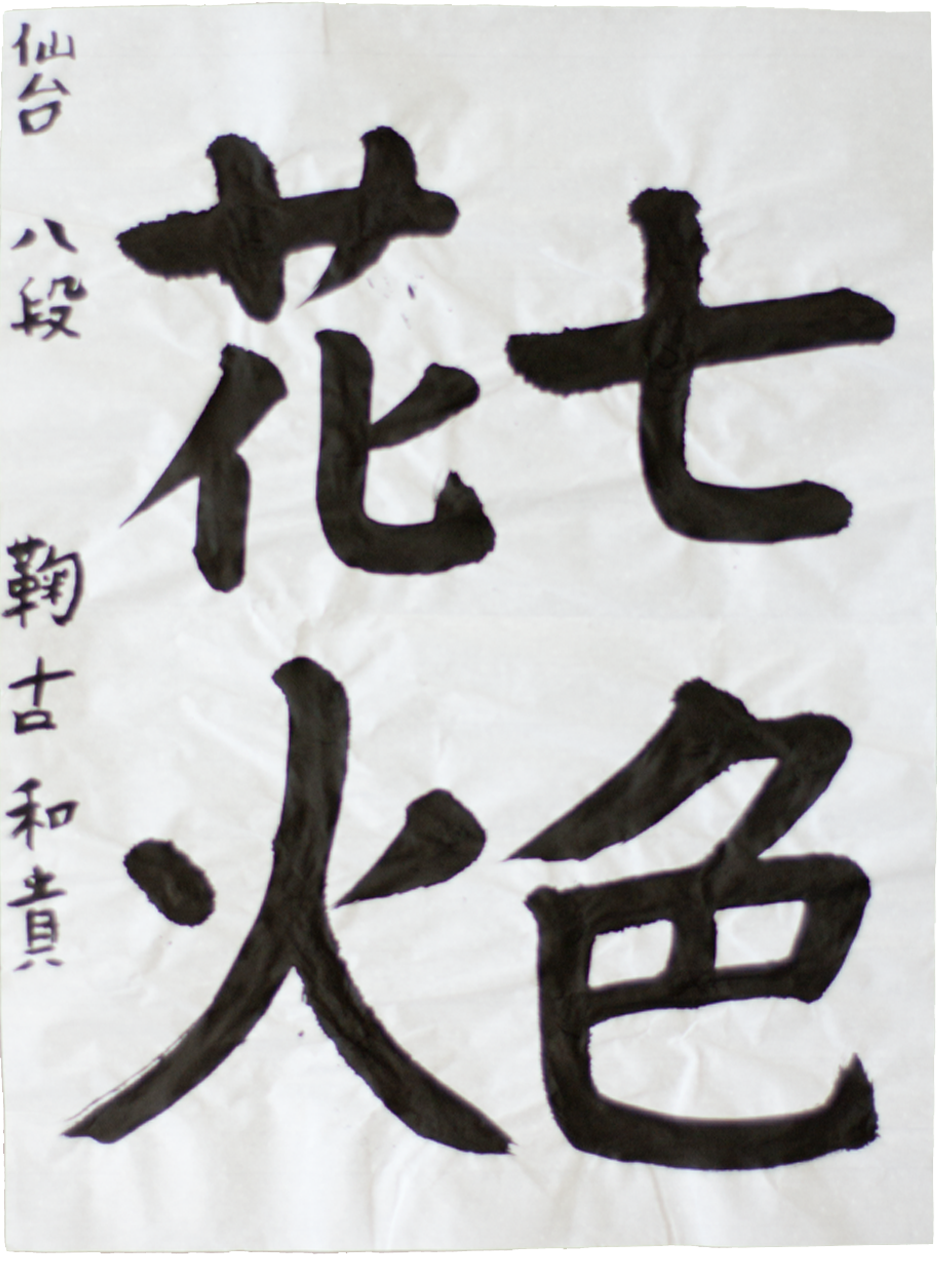 七色
花火
仙台 八段 鞠古和貴